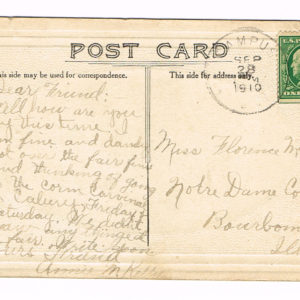 POST CARD
This side may be used for correspondence.
This side for address only.
SEP
28
1910
U.S. P
Dear Friend:
Well how are you
by this time I
am fine and dandy
over the fair fine
and thinking of going
to the Corn Carnival
Friday
Saturday. We didnt
any
fair. Write soon
Your Friend
Annie McKelly
Miss Florence M
Notre Dame Co
Bourbon
Ill